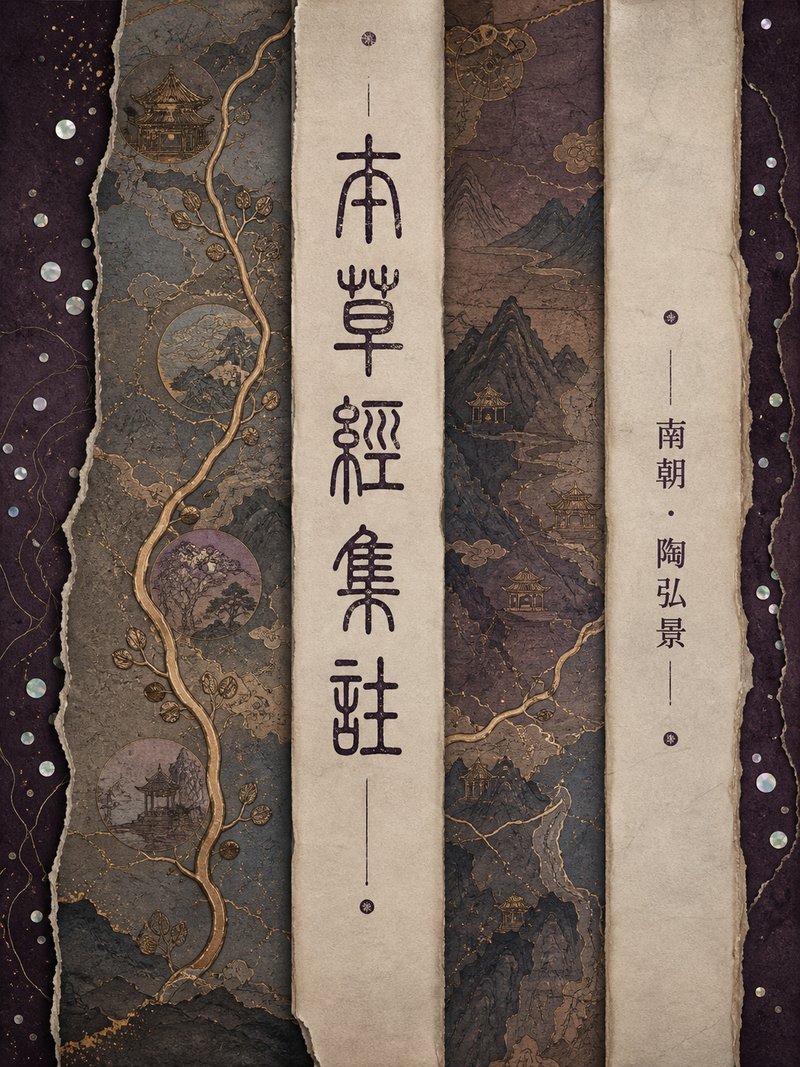 本草經集註
南朝・陶弘景